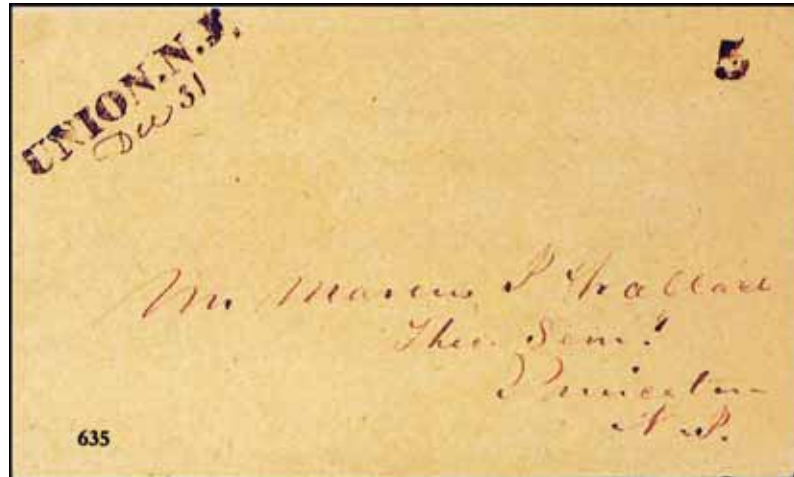 UNION.N.J.
Dec 31
5
Mr Marcus J Wallace
Theo. Sem.
Princeton
N J.
635